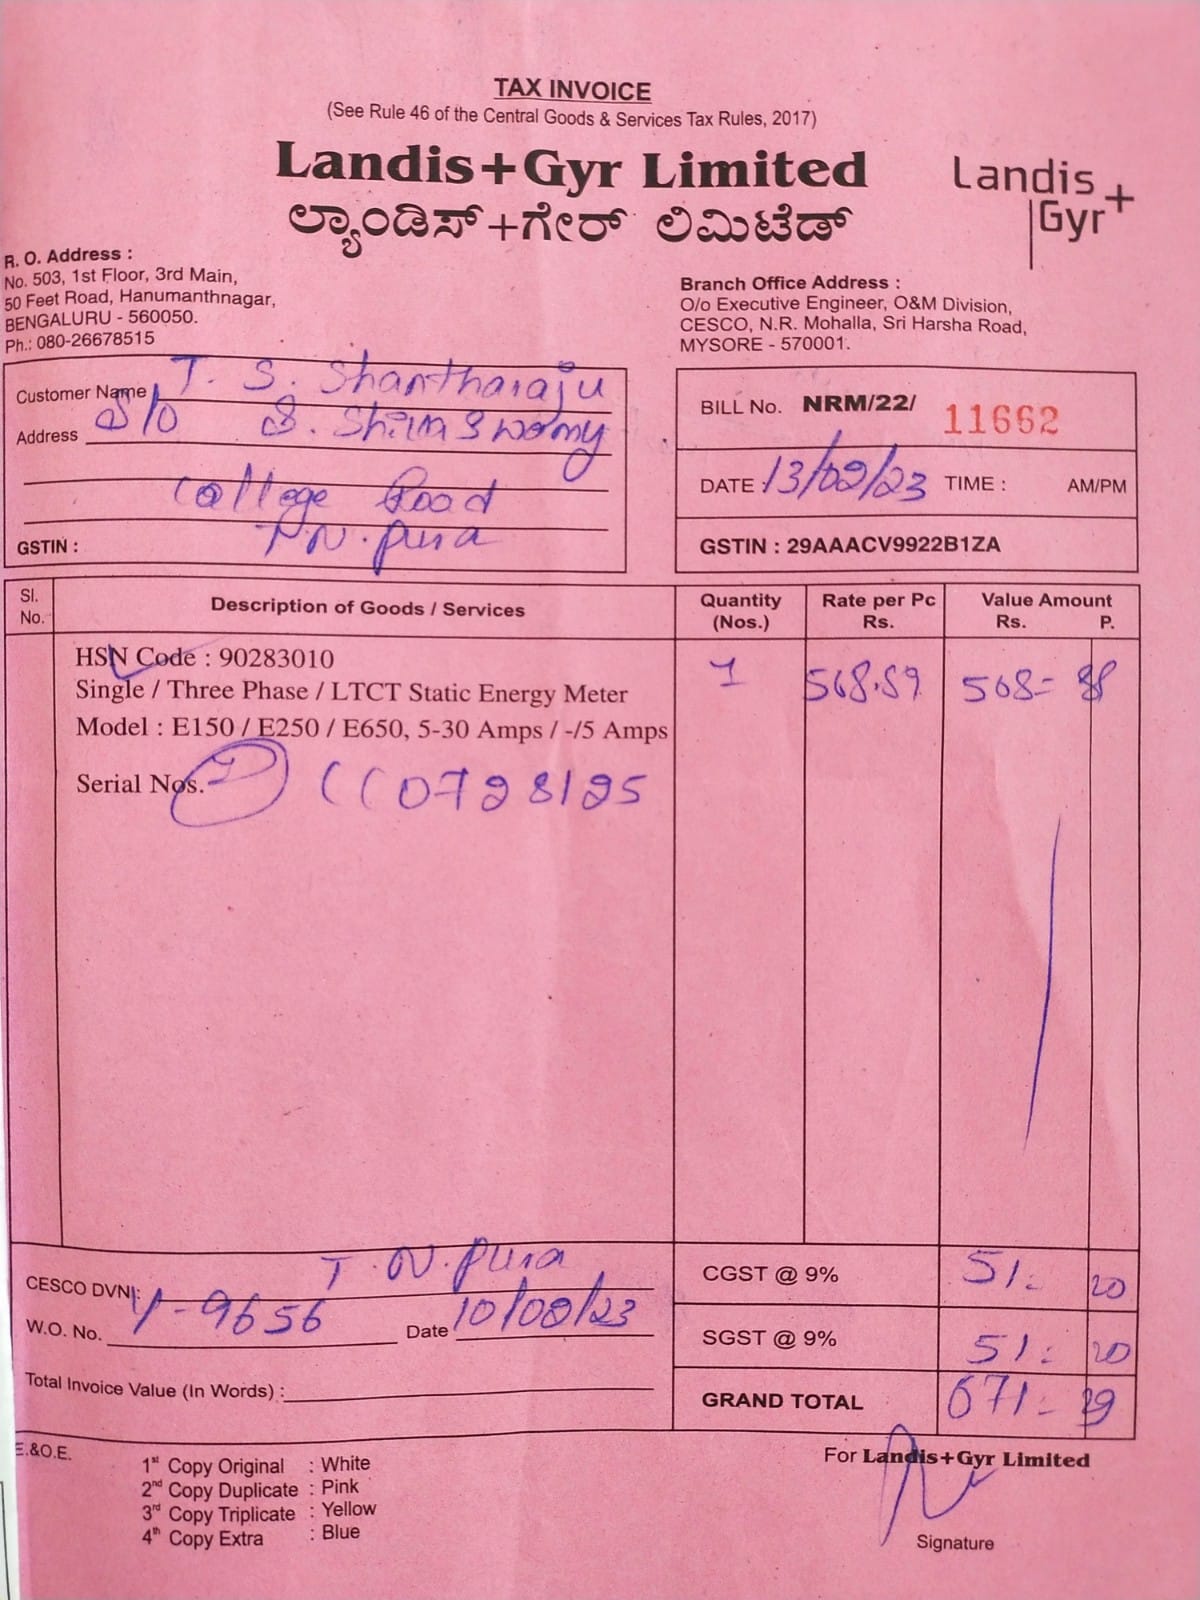 TAX INVOICE
(See Rule 46 of the Central Goods & Services Tax Rules, 2017)
Landis+Gyr Limited
ಲ್ಯಾಂಡಿಸ್+ಗೇರ್ ಲಿಮಿಟೆಡ್
Landis+
Gyr
R. O. Address :
No. 503, 1st Floor, 3rd Main,
50 Feet Road, Hanumanthnagar,
BENGALURU - 560050.
Ph.: 080-26678515
Branch Office Address :
O/o Executive Engineer, O&M Division,
CESCO, N.R. Mohalla, Sri Harsha Road,
MYSORE - 570001.
Customer Name T. S. Shantharaju
Address S/o S. Shivaswamy
College Road
T.N. pura
GSTIN :
BILL No. NRM/22/ 11662
DATE : 13/02/23 TIME : AM/PM
GSTIN : 29AAACV9922B1ZA
Sl. No. Description of Goods / Services Quantity (Nos.) Rate per Pc Rs. Value Amount Rs. P.
HSN Code : 90283010
Single / Three Phase / LTCT Static Energy Meter 1 568.89 568=
Model : E150 / E250 / E650, 5-30 Amps / -/5 Amps
Serial Nos. 0728125
CESCO DVN.: T. N. pura
W.O. No. 9656 Date 10/02/23
Total Invoice Value (In Words) :
CGST @ 9% 51- 20
SGST @ 9% 51- 20
GRAND TOTAL 671- 29
E.&O.E.
1st Copy Original : White
2nd Copy Duplicate : Pink
3rd Copy Triplicate : Yellow
4th Copy Extra : Blue
For Landis+Gyr Limited
Signature